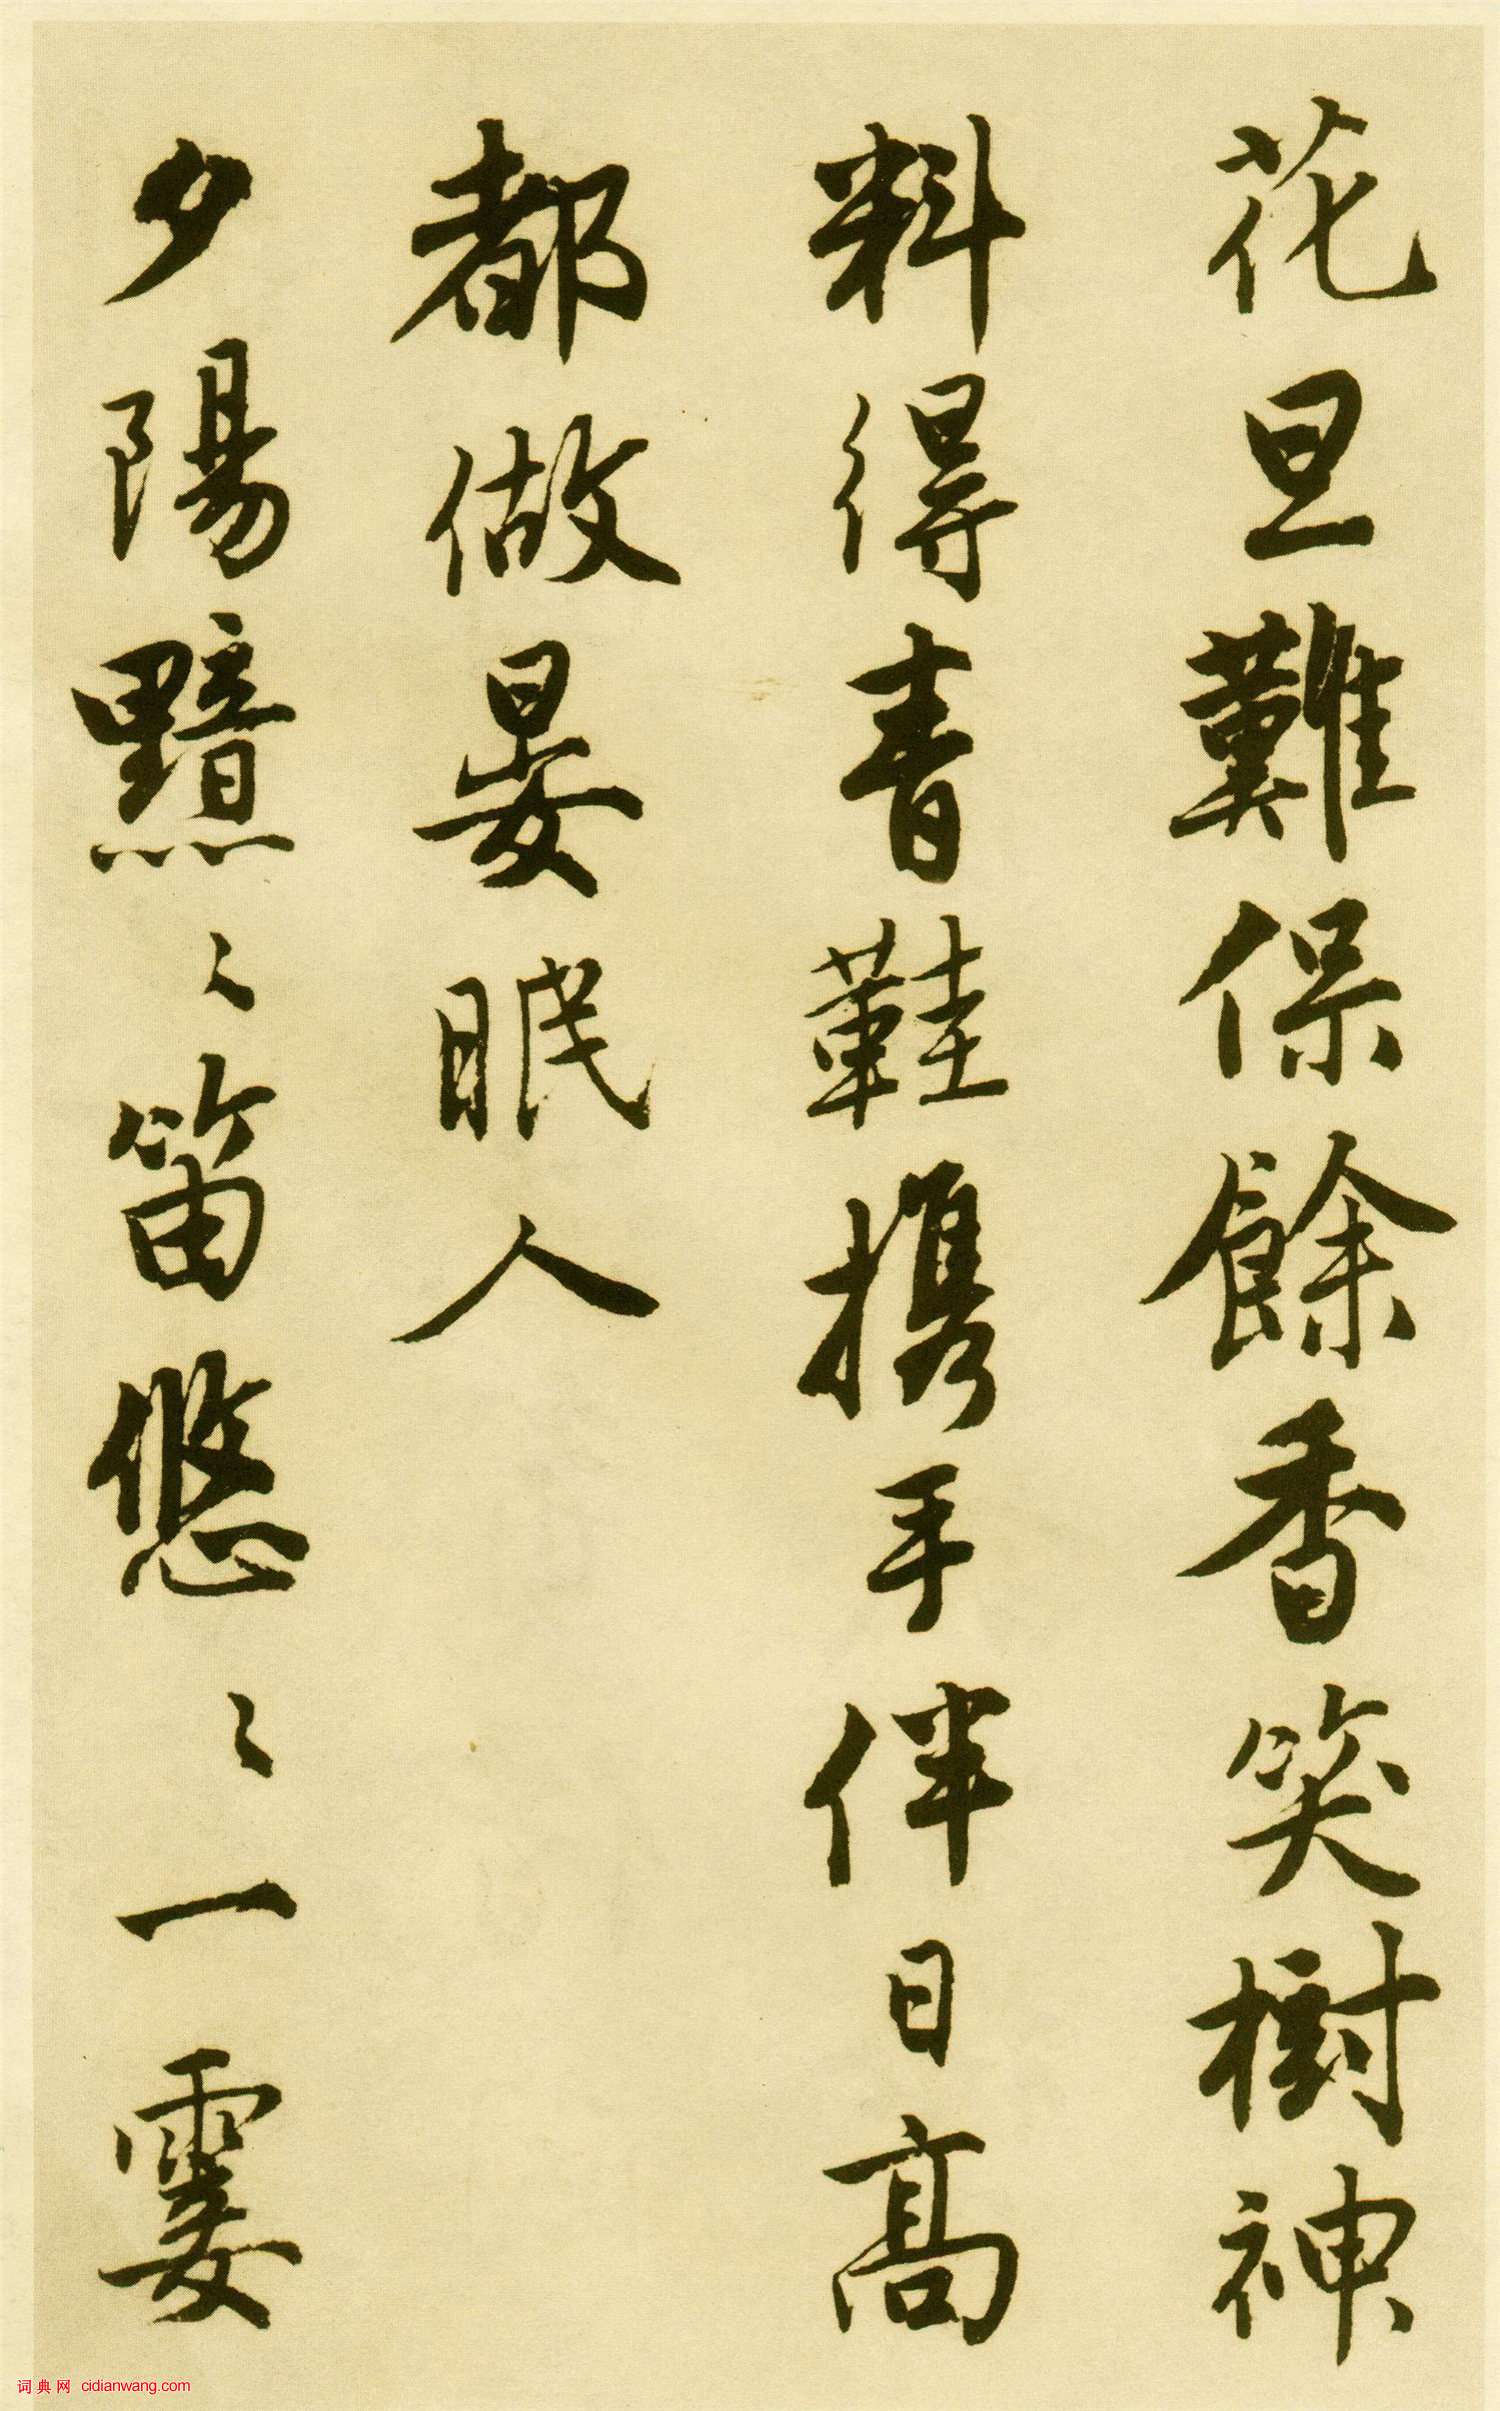 花旦難保餘香笑樹神
料得青鞋携手伴日高
都做晏眠人
夕陽黯〻笛悠〻一霎
词典网 cidianwang.com